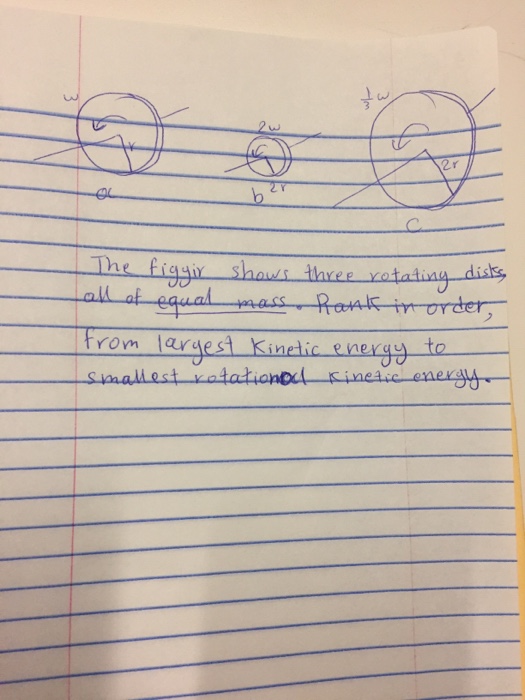 ω 2ω 1/3 ω
r 2r 2r
a b c
The figgir shows three rotating disks,
all of equal mass. Rank in order,
from largest Kinetic energy to
smallest rotational kinetic energy.